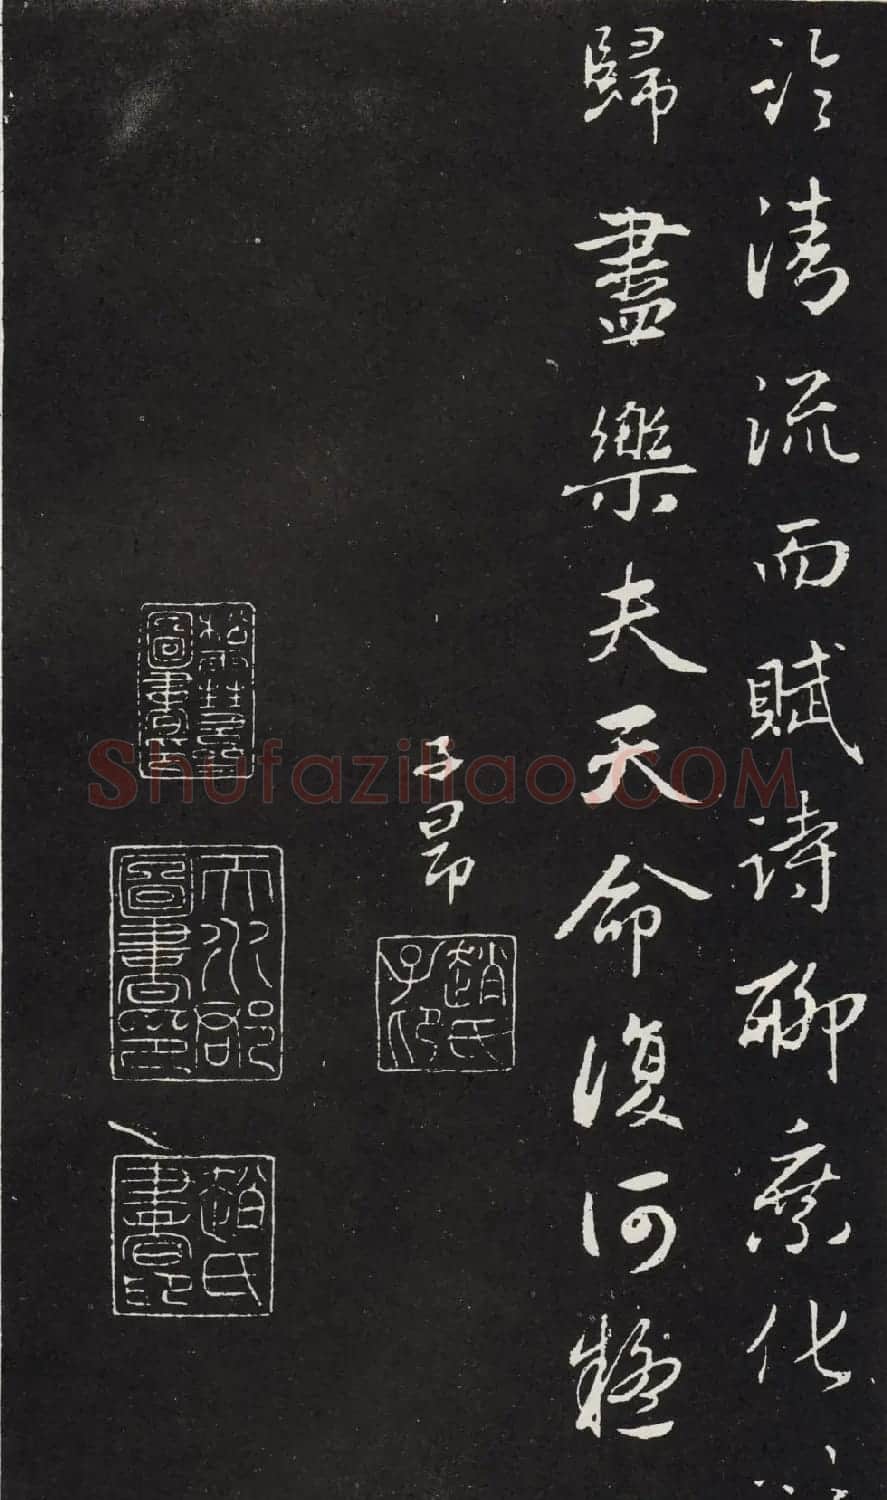 臨清流而賦詩聊乘化
歸盡樂夫天命復何疑
子昂
趙氏
子昂
松雪齋
圖書印
天水郡
圖書印
趙氏
書印
Shufaziliao.COM